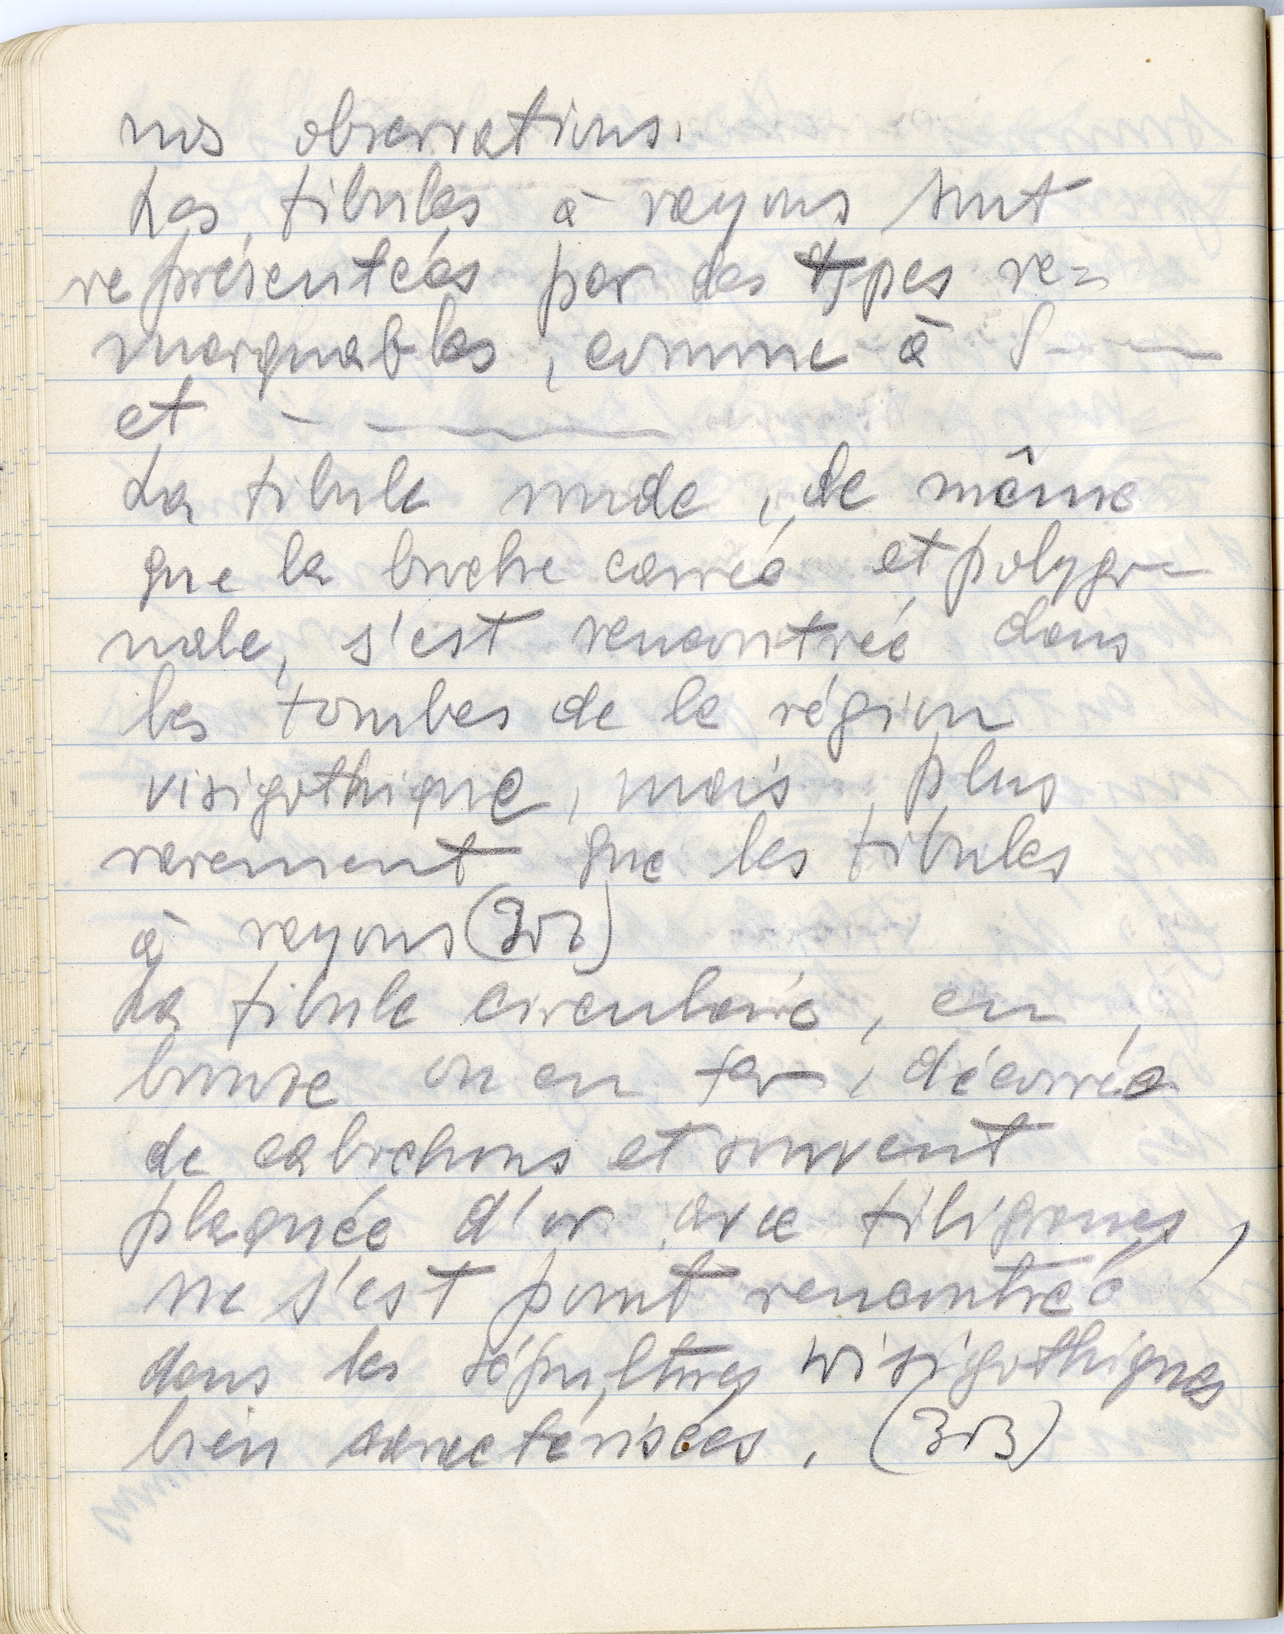 nos observations.
Les fibules à rayons sont
représentées par des types re=
marquables, comme à S
et
La fibule ronde, de même
que la broche carrée et polygo-
nale, s'est rencontrée dans
les tombes de la région
visigothique, mais plus
rarement que les fibules
à rayons (302)
La fibule circulaire, en
bronze ou en fer, décorée
de cabochons et souvent
plaquée d'or avec filigranes,
ne s'est point rencontrée
dans les sépultures wisigothiques
bien caractérisées. (303)